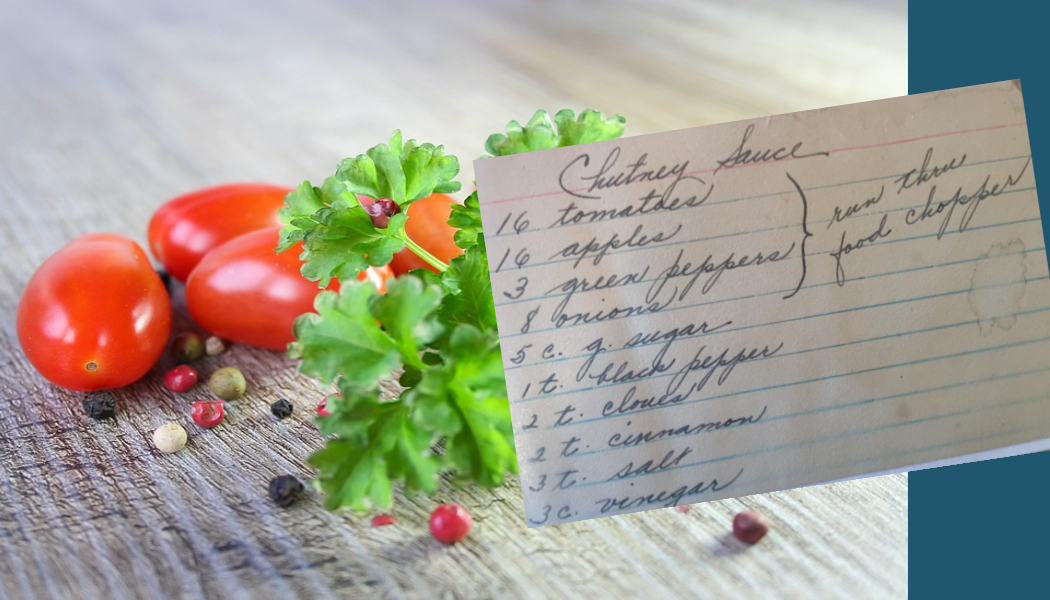 Chutney Sauce
16 tomatoes
16 apples
3 green peppers
8 onions
run thru
food chopper
5 c. g. sugar
1 t. black pepper
2 t. cloves
2 t. cinnamon
3 t. salt
3 c. vinegar